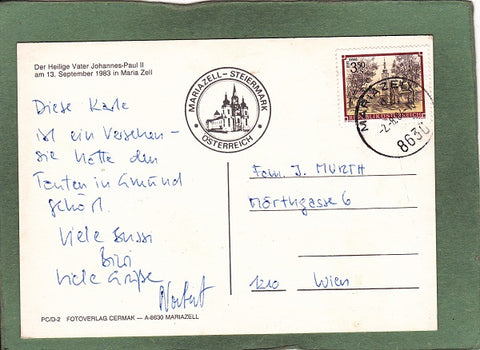 Der Heilige Vater Johannes-Paul II
am 13. September 1983 in Maria Zell
Diese Karte
ist ein Versehen -
sie hätte den
Tanten in Gmünd
gehört.
Viele Bussi
Viele Grüße
Norbert
PC/D-2 FOTOVERLAG CERMAK — A-8630 MARIAZELL
MARIAZELL - STEIERMARK
ÖSTERREICH
3.50
REPUBLIK ÖSTERREICH
MARIAZELL
8630
Fam. J. MURTH
Mörthgasse 6
1210 Wien